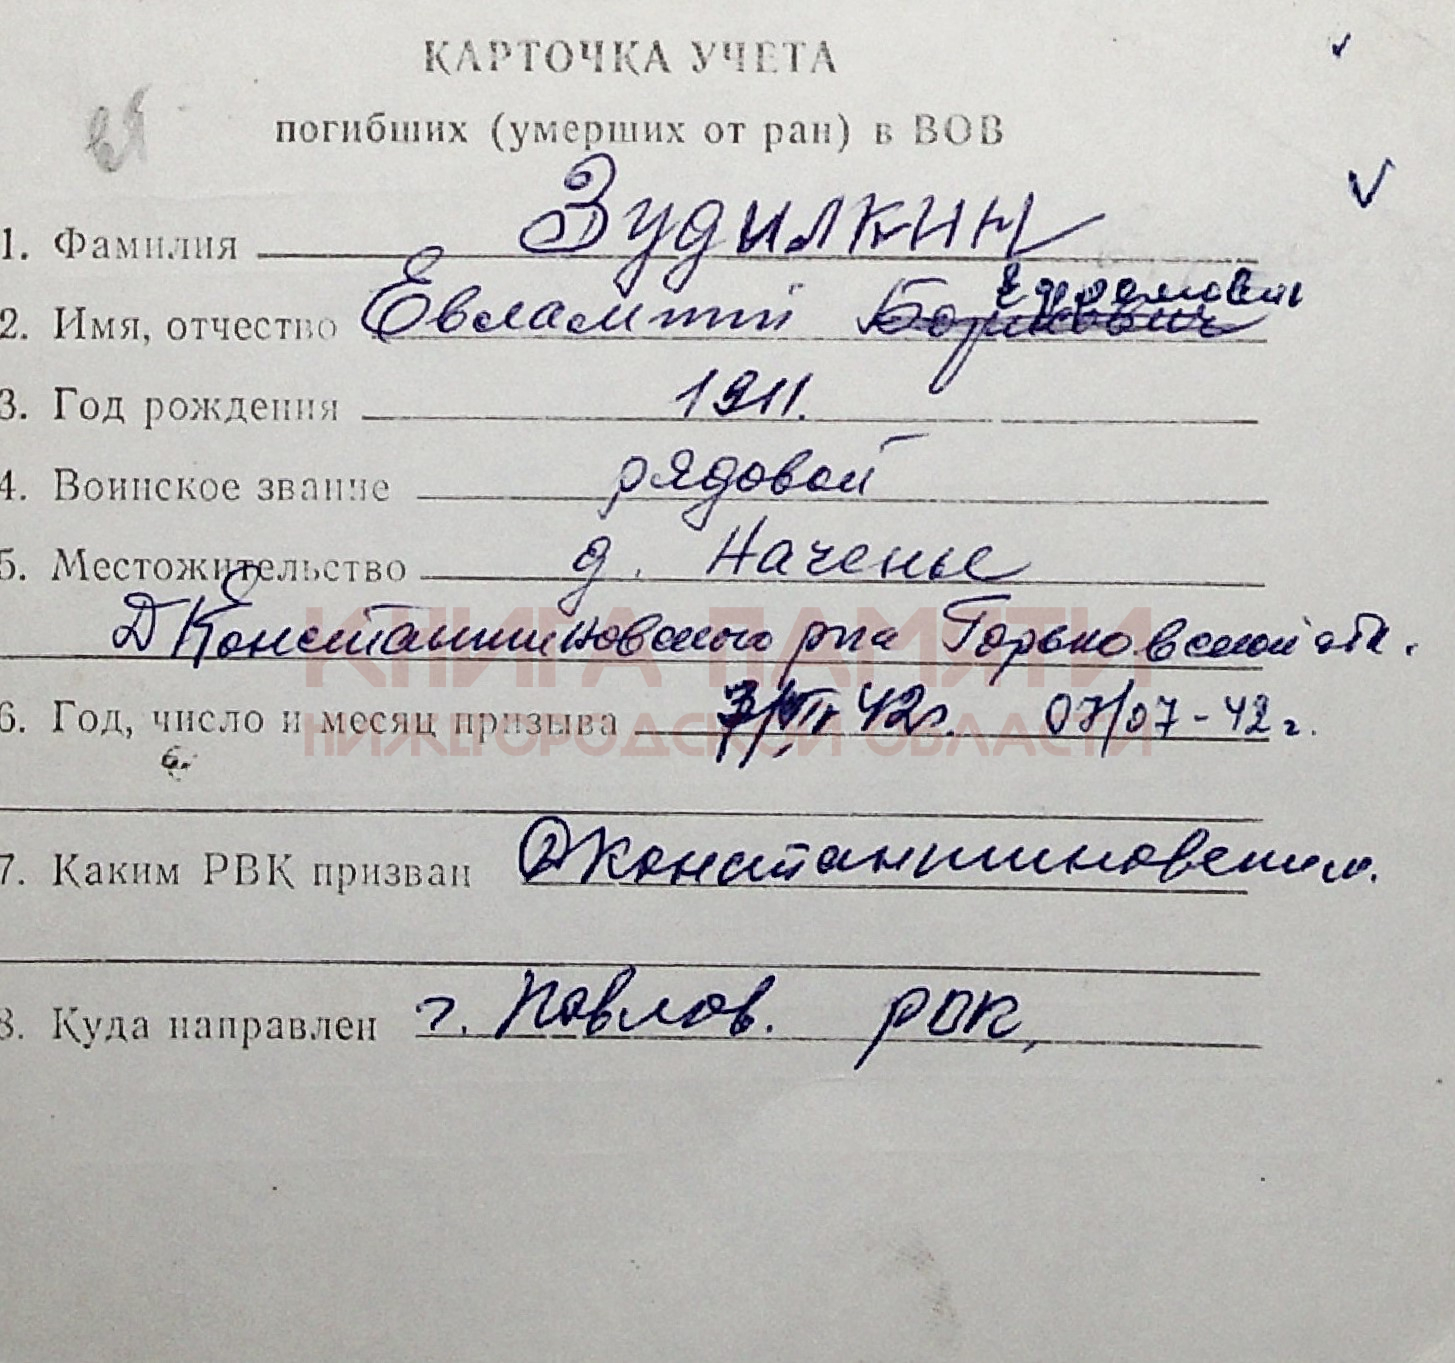 КАРТОЧКА УЧЕТА
погибших (умерших от ран) в ВОВ
1. Фамилия Зудилкин
2. Имя, отчество Евлампий Борисович
3. Год рождения 1911.
4. Воинское звание рядовой
5. Местожительство д. Наченье
Д Константиновского р-на Горьковской обл.
КНИГА ПАМЯТИ
НИЖЕГОРОДСКОЙ ОБЛАСТИ
6. Год, число и месяц призыва 7/VII 42г. 07/07-42г.
7. Каким РВК призван Д Константиновским.
8. Куда направлен г. Павлов. РВК,